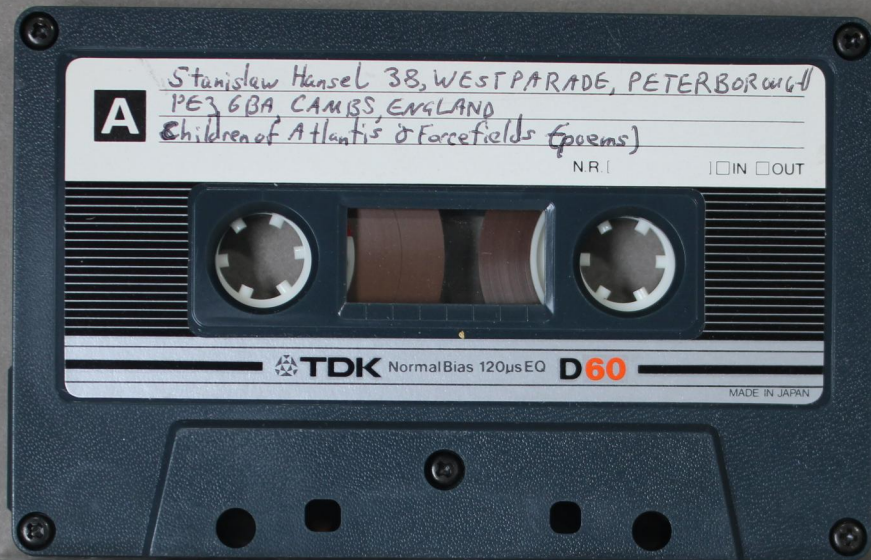 Stanislaw Hansel 38, WEST PARADE, PETERBOROUGH
A PE3 6BA, CAMBS, ENGLAND
Children of Atlantis & Forcefields (poems)
N.R. [ ] IN OUT
TDK Normal Bias 120µs EQ D60
MADE IN JAPAN